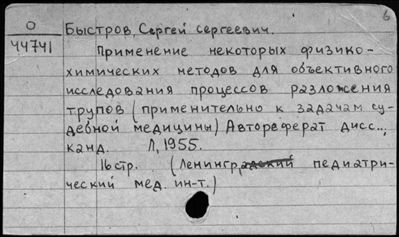 6
О
44741
Быстров, Сергей Сергеевич.
Применение некоторых физико-
химических методов для объективного
исследования процессов разложения
трупов (применительно к задачам су-
дебной медицины) Автореферат дисс..,
канд. Л, 1955.
16 стр. (Ленингр. педиатри-
ческий мед. ин-т.)